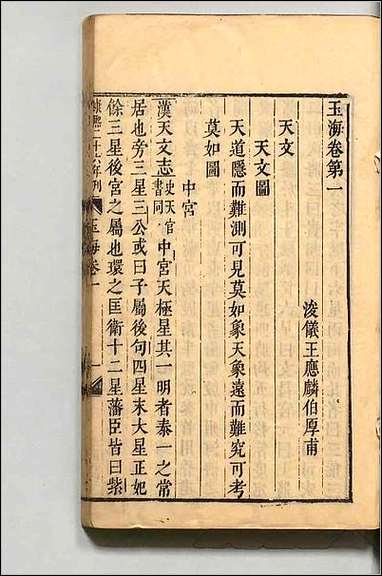 玉海卷第一
浚儀王應麟伯厚甫
天文
天文圖
天道隱而難測可見莫如象天象遠而難究可考
莫如圖
中宮
漢天文志史天官書同中宮天極星其一明者泰一之常
居也旁三星三公或曰子屬後句四星末大星正妃
餘三星後宮之屬也環之匡衛十二星藩臣皆曰紫
康熙二十六年刊
玉海卷一
一